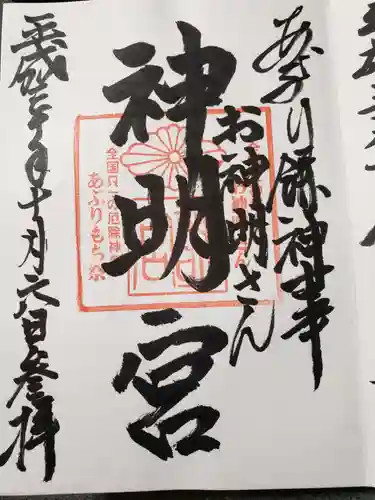 あぶり餅神事
お神明さん
神明宮
全国只一の厄除神事
あぶりもち祭
平成三十年十月六日参拝